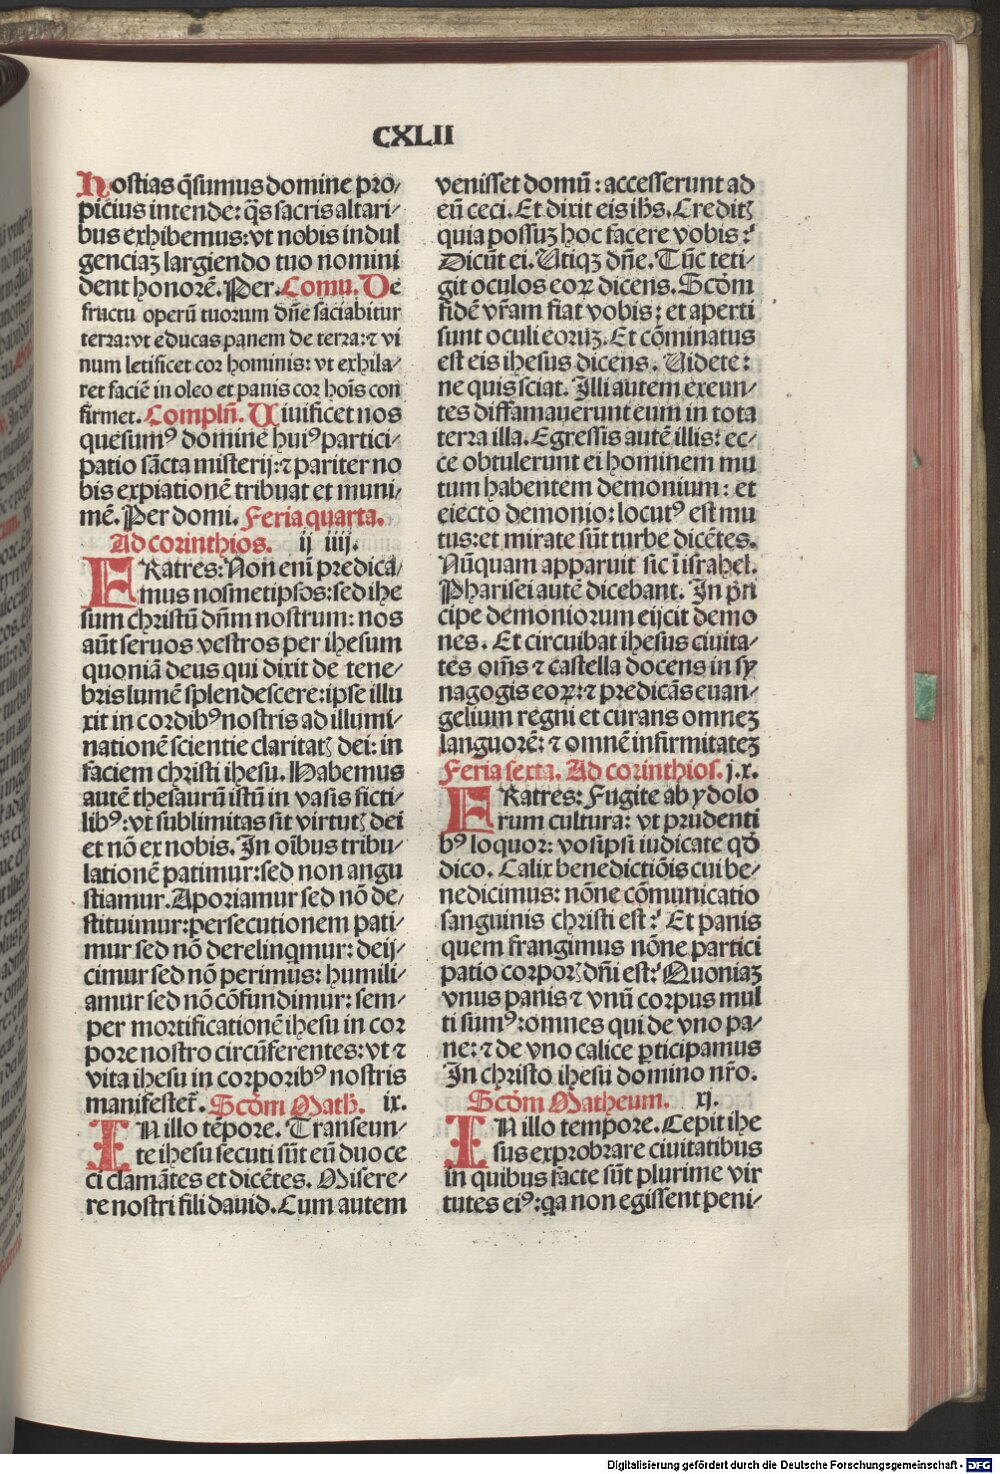 CXLII
Hostias q̃sumus domine pro/
picius intende: q̃s sacris altari/
bus exhibemus: vt nobis indul
genciaꝫ largiendo tuo nomini
dent honorẽ. Per. Comu. De
fructu operũ tuorum dñe saciabitur
terra: vt educas panem de terra: ⁊ vi
num letificet cor hominis: vt exhila/
ret faciẽ in oleo et panis cor hoĩs con
firmet. Complñ. Uiuificet nos
quesumꝰ domine huiꝰ partici/
patio sãcta misterij: ⁊ pariter no
bis expiationẽ tribuat et muni/
mẽ. Per domi. Feria quarta.
Ad corinthios. ij iiij.
FRatres: Non enĩ predicã/
mus nosmetipsos: sed ihe
sum christũ dñm nostrum: nos
aũt seruos vestros per ihesum
quoniã deus qui dixit de tene/
bris lumẽ splendescere: ipse illu
xit in cordibꝰ nostris ad illumi/
nationẽ scientie claritatꝭ dei: in
faciem christi ihesu. Habemus
autẽ thesaurũ istũ in vasis ficti/
libꝰ: vt sublimitas sit virtutꝭ dei
et nõ ex nobis. In oĩbus tribu/
lationẽ patimur: sed non angu
stiamur. Aporiamur sed nõ de/
stituimur: persecutionem pati/
mur sed nõ derelinqmur: deij/
cimur sed nõ perimus: humili/
amur sed nõ cõfundimur: sem/
per mortificationẽ ihesu in cor
pore nostro circũferentes: vt ⁊
vita ihesu in corporibꝰ nostris
manifestet̃. Scd̃m Math. ix.
IN illo tẽpore. Transeun/
te ihesu secuti sũt eũ duo ce
ci clamãtes et dicẽtes. Misere/
re nostri fili dauid. Cum autem
venisset domũ: accesserunt ad
eũ ceci. Et dixit eis ihs̃. Creditꝭ
quia possuꝫ hoc facere vobis?
Dicũt ei. Utiqꝫ dñe. Tũc teti/
git oculos eoꝝ dicens. Scd̃m
fidẽ vr̃am fiat vobis: et aperti
sunt oculi eoruꝫ. Et cõminatus
est eis ihesus dicens. Uidete:
ne quis sciat. Illi autem exeun/
tes diffamauerunt eum in tota
terra illa. Egressis autẽ illis: ec/
ce obtulerunt ei hominem mu
tum habentem demonium: et
eiecto demonio: locutꝰ est mu
tus: et mirate sũt turbe dicẽtes.
Nũquam apparuit sic ĩ israhel.
Pharisei autẽ dicebant. In prĩ
cipe demoniorum eijcit demo
nes. Et circuibat ihesus ciuita/
tes oĩs ⁊ castella docens in sy
nagogis eoꝝ: ⁊ predicãs euan/
gelium regni et curans omneꝫ
languorẽ: ⁊ omnẽ infirmitateꝫ
Feria sexta. Ad corinthios. j. x.
FRatres: Fugite ab ydolo
rum cultura: vt prudenti
bꝰ loquor: vosipsi iudicate qd̃
dico. Calix benedictiõis cui be/
nedicimus: nõne cõmunicatio
sanguinis christi est? Et panis
quem frangimus nõne partici
patio corporꝭ dñi est? Quoniaꝫ
vnus panis ⁊ vnũ corpus mul
ti sumꝰ: omnes qui de vno pa/
ne: ⁊ de vno calice ꝑticipamus
In christo ihesu domino nr̃o.
Scd̃m Matheum. xj.
IN illo tempore. Cepit ihe
sus exprobrare ciuitatibus
in quibus facte sũt plurime vir
tutes eiꝰ: qa non egissent peni/
Digitalisierung gefördert durch die Deutsche Forschungsgemeinschaft - DFG